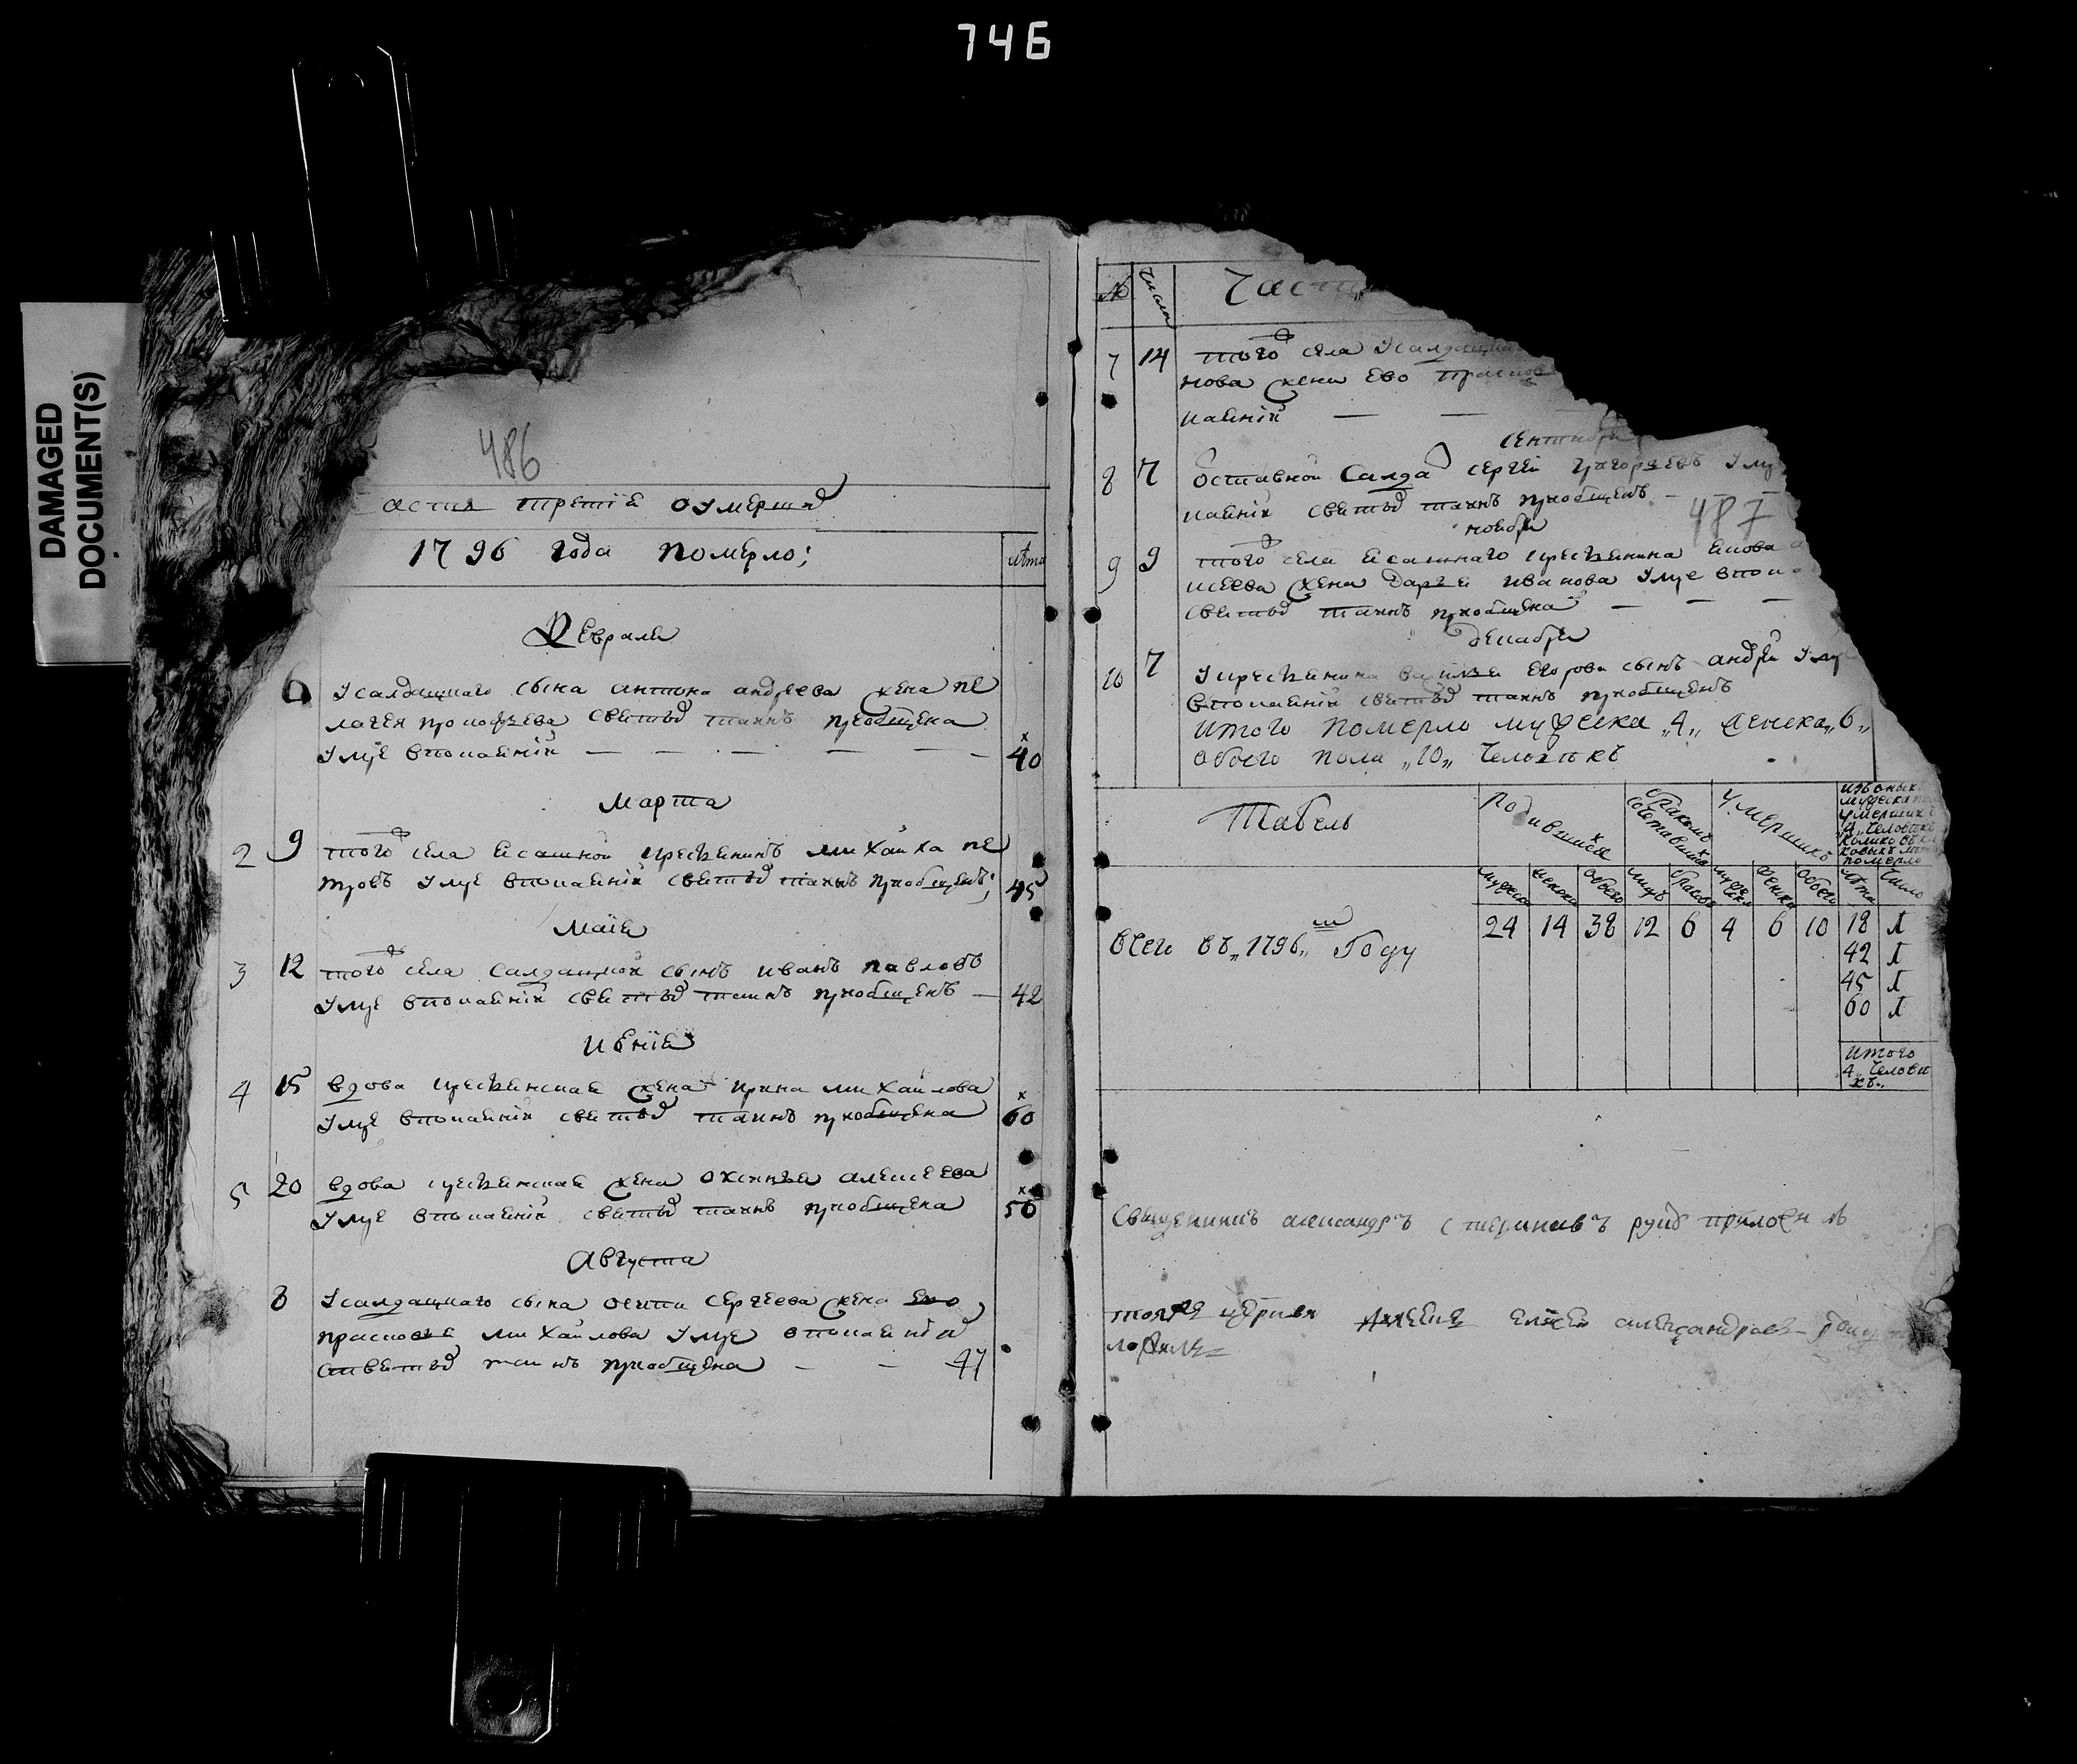 746
DAMAGED
DOCUMENT(S)
486
астия третіѧ о умершихъ
1796 года померло;
лѣта
Февралѧ
6 У салдацкаго сына антона андреева жена пе
лагея прокофьева святыхъ таинъ приобщена
умре в покаѧніи — — — — — 40
Марта
2 9 того села Ясашной крестьянинъ михайла пе
тровъ умре в покаѧніи святыхъ таинъ приобщенъ; 45
Маія
3 12 того села салдацкой сынъ иванъ павловъ
умре в покаѧніи святыхъ таинъ приобщенъ — 42
Июнія
4 15 вдова крестьянская жена ирина михайлова
умре в покаѧніи святыхъ таинъ приобщена 60
5 20 вдова крестьянская жена оксинья алексеева
умре в покаѧніи святыхъ таинъ приобщена 50
Августа
8 У салдацкаго сына осипа сергеева жена ево
прасковья михайлова умре в покаѧніи
святыхъ таинъ приобщена — — 47
№ числа Част
7 14 того села У салдацка
нова жена ево праско
каѧніи — —
сентября
8 7 отставной салда сергей григорьевъ умр
каѧніи святыхъ таинъ приобщенъ —
487
ноября
9 9 того села ясашнаго крестьянина якова а
ксеева жена дарья иванова умре в пока
святыхъ таинъ приобщена — — —
декабря
10 7 У крестьянина егорова сынъ андрей умре
в покаѧніи святыхъ таинъ приобщенъ
итого померло мужеска „4„ женска „6„
обоего пола „10„ человѣкъ
Табель
Родившихся
бракомъ сочетавшихся
Умершихъ
изъ оныхъ
мужеска по
умершихъ
„4„ человѣкъ
колико въ ка
ковыхъ лѣта
померло
мужеска женска обоего лицъ браковъ мужеска женска обоего лѣта число
Всего въ „1796„ м Году 24 14 38 12 6 4 6 10 18 1
42 1
45 1
60 1
Итого
4 человѣ
къ„
Священникъ александръ руку приложилъ
тояже церкви елисей александровъ руку
ложилъ